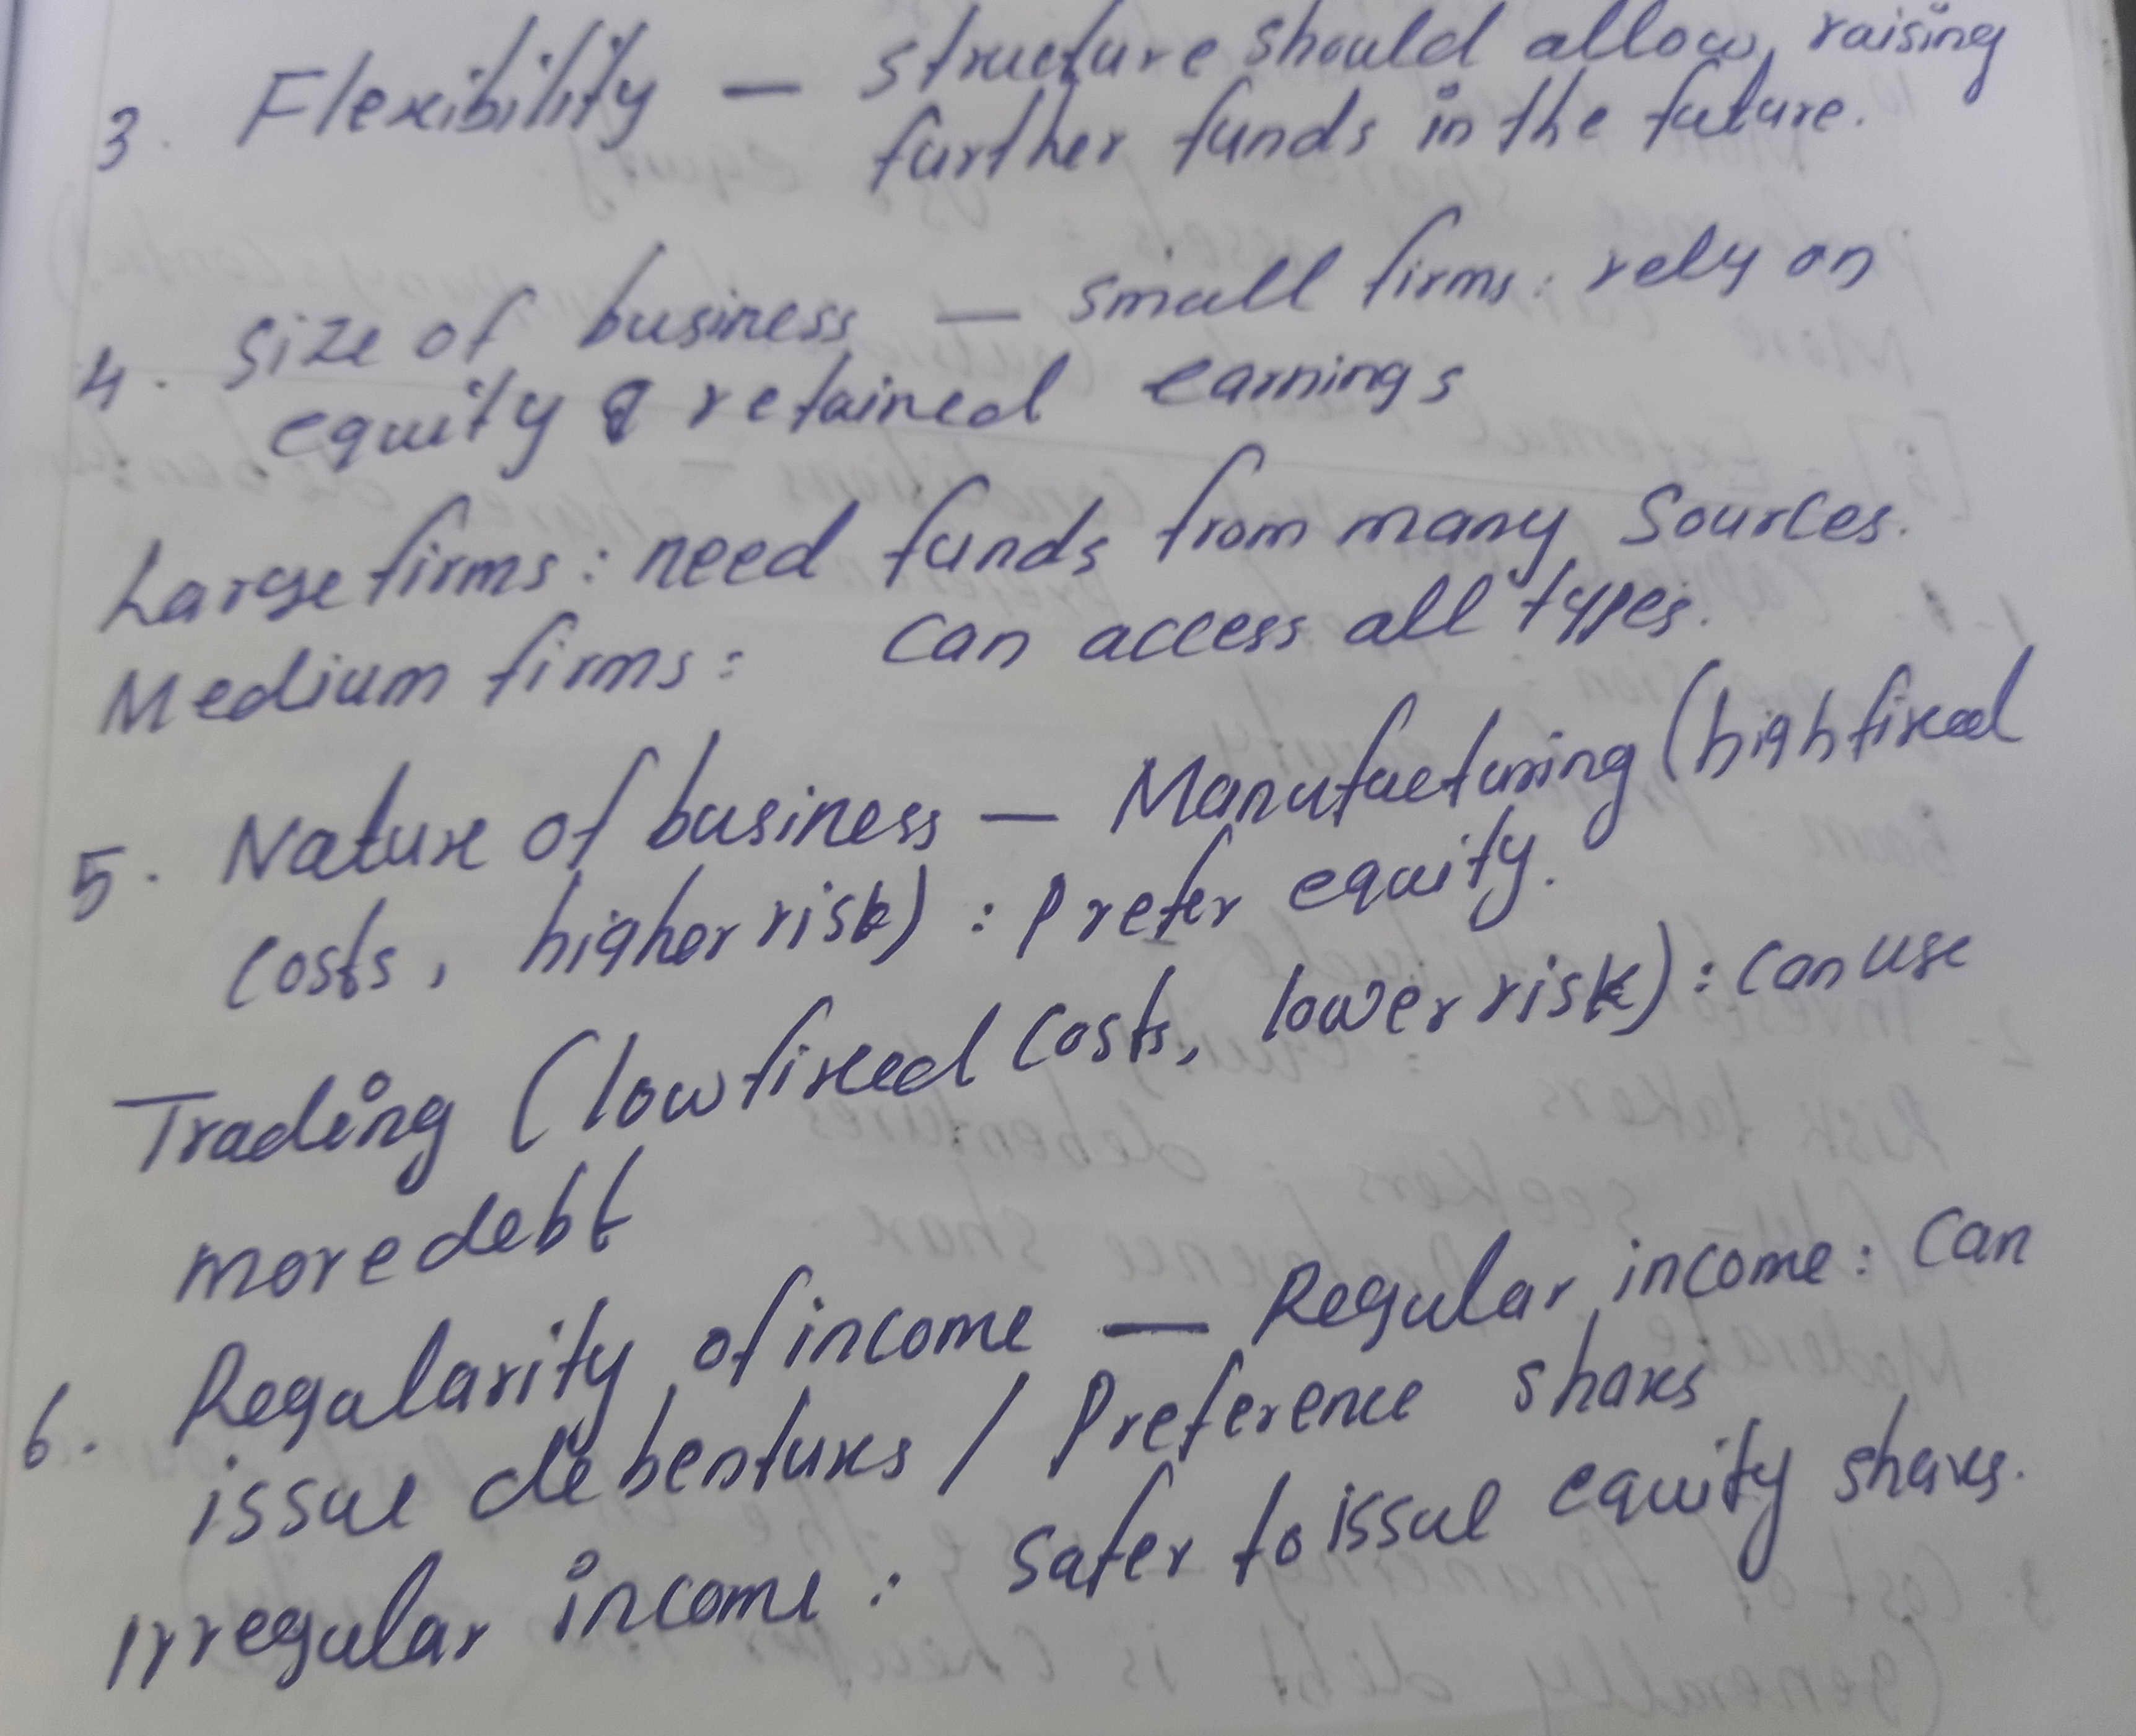 3. Flexibility — structure should allow raising
further funds in the future.
4. Size of business — small firms: rely on
equity & retained earnings
Large firms: need funds from many sources.
Medium firms: can access all types.
5. Nature of business — Manufacturing (high fixed
costs, higher risk): prefer equity.
Trading (low fixed costs, lower risk): can use
more debt
6. Regularity of income — Regular income: can
issue debentures / Preference shares
Irregular income: safer to issue equity shares.